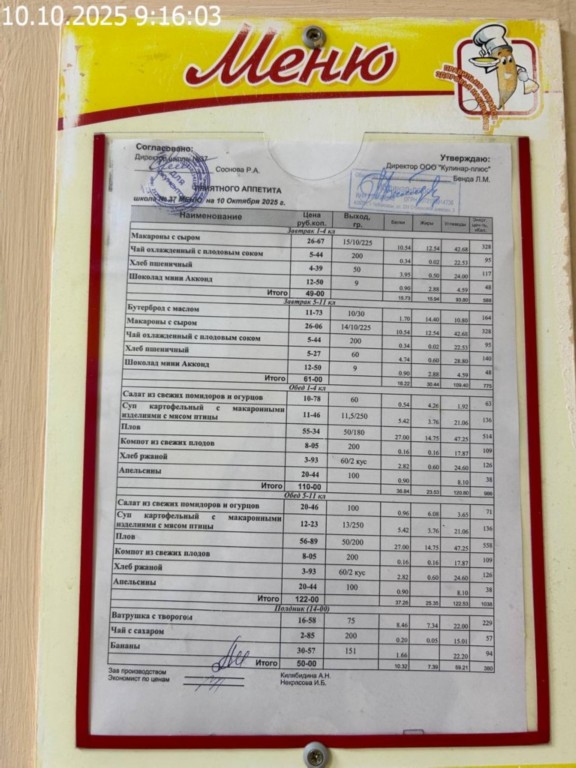 10.10.2025 9:16:03
Меню
Согласовано:
Утверждаю:
Соснова Р.А.
Директор ООО "Кулинар-плюс"
Бенда Л.М.
ПРИЯТНОГО АППЕТИТА
школа № 37 МЕНЮ на 10 Октября 2025 г.
Наименование Цена руб.коп. Выход, гр. Белки Жиры Углеводы
Завтрак 1-4 кл
Макароны с сыром 26-67 15/10/225 10.54 12.54 42.68 328
Чай охлажденный с плодовым соком 5-44 200 0.34 0.02 22.53 95
Хлеб пшеничный 4-39 50 3.95 0.50 24.00 117
Шоколад мини Акконд 12-50 9 0.90 2.88 4.59 48
Итого 49-00
Завтрак 5-11 кл
Бутерброд с маслом 11-73 10/30 1.70 14.40 10.80 164
Макароны с сыром 26-06 14/10/225 10.54 12.54 42.68 328
Чай охлажденный с плодовым соком 5-44 200 0.34 0.02 22.53 95
Хлеб пшеничный 5-27 60 4.74 0.60 28.80 140
Шоколад мини Акконд 12-50 9 0.90 2.88 4.59 48
Итого 61-00 18.22 30.44 109.40 775
Обед 1-4 кл
Салат из свежих помидоров и огурцов 10-78 60 0.54 4.26 1.92 63
Суп картофельный с макаронными
изделиями с мясом птицы 11-46 11,5/250 5.42 3.76 21.06 136
Плов 55-34 50/180 27.00 14.75 47.25 514
Компот из свежих плодов 8-05 200 0.16 0.16 17.87 109
Хлеб ржаной 3-93 60/2 кус 2.82 0.60 24.60 126
Апельсины 20-44 100 0.90 8.10 38
Итого 110-00
Обед 5-11 кл
Салат из свежих помидоров и огурцов 20-46 100 0.96 6.08 3.65 71
Суп картофельный с макаронными
изделиями с мясом птицы 12-23 13/250 5.42 3.76 21.06 136
Плов 56-89 50/200 27.00 14.75 47.25 558
Компот из свежих плодов 8-05 200 0.16 0.16 17.87 109
Хлеб ржаной 3-93 60/2 кус 2.82 0.60 24.60 126
Апельсины 20-44 100 0.90 8.10 38
Итого 122-00 37.26 25.35 122.53 1038
Полдник (14-00)
Ватрушка с творогом 16-58 75 8.46 7.34 22.00 229
Чай с сахаром 2-85 200 0.20 0.05 15.01 57
Бананы 30-57 151 1.66 22.20 94
Итого 50-00 10.32 7.39 59.21 380
Зав производством Килебидина А.Н.
Экономист по ценам Некрасова И.Б.